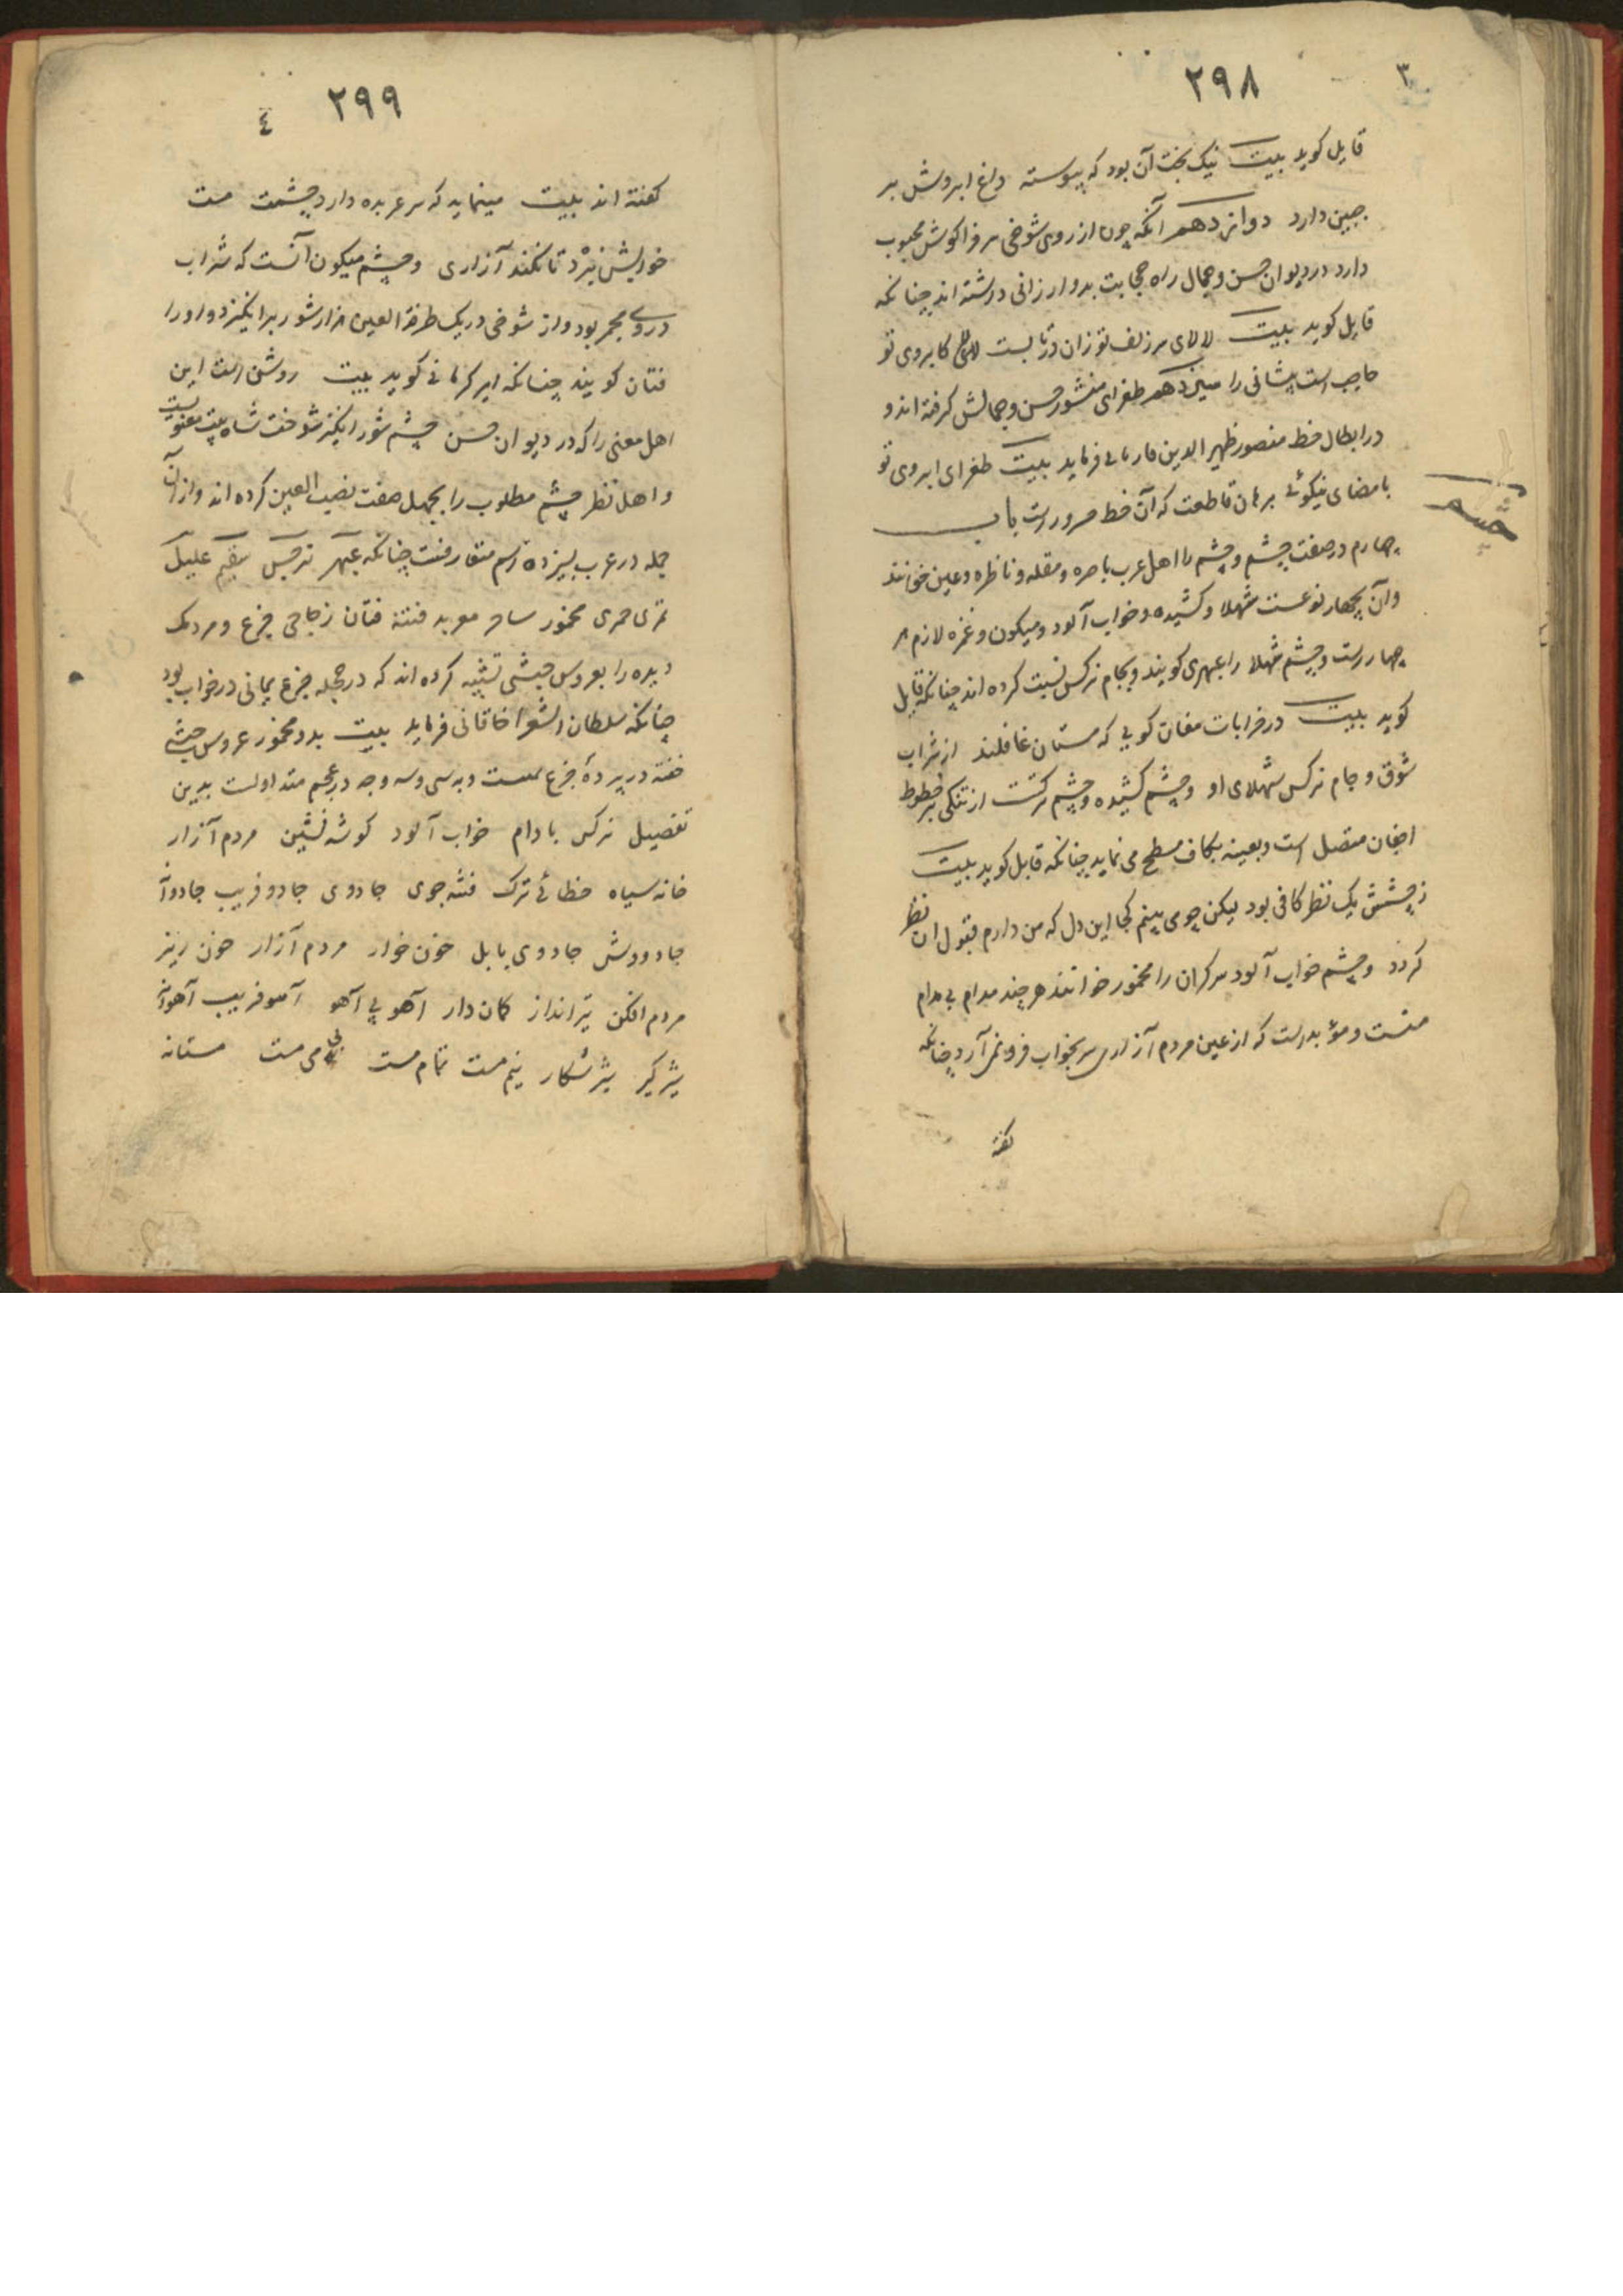 ۳
۲۹۸
قایل کوید بیت نیک بخت آن بود که پیوسته داغ ابروش بر
جبین دارد دوازدهم آنکه چون از روی شوخی سر فرا کوش محبوب
دارد در دیوان حسن و جمال راه حجابت بدو ارزانی داشته اند چنانکه
قایل کوید بیت لالای سر زلف تو زان در تا بست کابروی تو
حاجب است پیشانی را سیزدهم طغرای منشور حسن و جمالش کرفته اند و
در ابطال خط منصور ظهیر الدین فاریابی فرماید بیت طغرای ابروی تو
بامضای نیکوئی برهان قاطعت که آن خط مزورست باب
چهارم در صفت چشم و چشم را اهل عرب باصره و مقله و ناظره و عین خوانند
چشم
وآن بچهار نوعست شهلا و کشیده و خواب آلود و میکون و غمزه لازم هر
چهارست و چشم شهلا را عبهری کویند و بجام نرکس نسبت کرده اند چنانکه قایل
کوید بیت در خرابات مغان کویی که مستان غافلند از شراب
شوق و جام نرکس شهلای او و چشم کشیده و چشم ترکست از تنکی بر خطوط
اجفان متصل است و بعینه بکاف مسطح می نماید چنانکه قایل کوید بیت
ز چشمش یک نظر کافی بود لیکن چو می بینم کجا این دل که من دارم قبول ان نظر
کردد و چشم خواب آلود سرکران را مخمور خوانند هرچند مدام بی مدام
مست و مؤبدست که از عین مردم آزاری سر بخواب فرو نمی آرد چنانکه
کفته
۲۹۹
٤
کفته اند بیت مینماید که سر عربده دارد چشمت مست
خوابش نبرد تا نکند آزاری و چشم میکون آنست که شراب
دروی مخمر بود و از شوخی در یک طرفة العین هزار شور برانکیزد و او را
فتان کویند چنانکه امیر کرمانی کوید بیت روشن است این
اهل معنی را که در دیوان حسن چشم شور انکیز شوخت شاه بیت معنویست
و اهل نظر چشم مطلوب را بچهل صفت نصب العین کرده اند و از آن
جمله در عرب بسیزده اسم متعارفست چنانکه عبهر نرجس سقیم علیل
خمری مخمور ساحر معربد فتنه فتان زجاجی جزع و مردمک
دیده را بعروس حبشی تشبیه کرده اند که در حجله جزع یمانی در خواب بود
چنانکه سلطان الشعرا خاقانی فرماید بیت بدو مخمور عروس حبشی
خفته در پردۀ جزع یمنست و به سی و سه وجه در عجم متداولست بدین
تفصیل نرکس بادام خواب آلود کوشه نشین مردم آزار
خانه سیاه خطائی ترک فتنه جوی جادوی جادو فریب جادوآ
جادووش جادوی بابل خون خوار مردم آزار خون ریز
مردم افکن تیرانداز کمان دار آهو بی آهو آهو فریب آهوانه
شیرکیر شیر شکار نیم مست تمام مست بی می مست مستانه